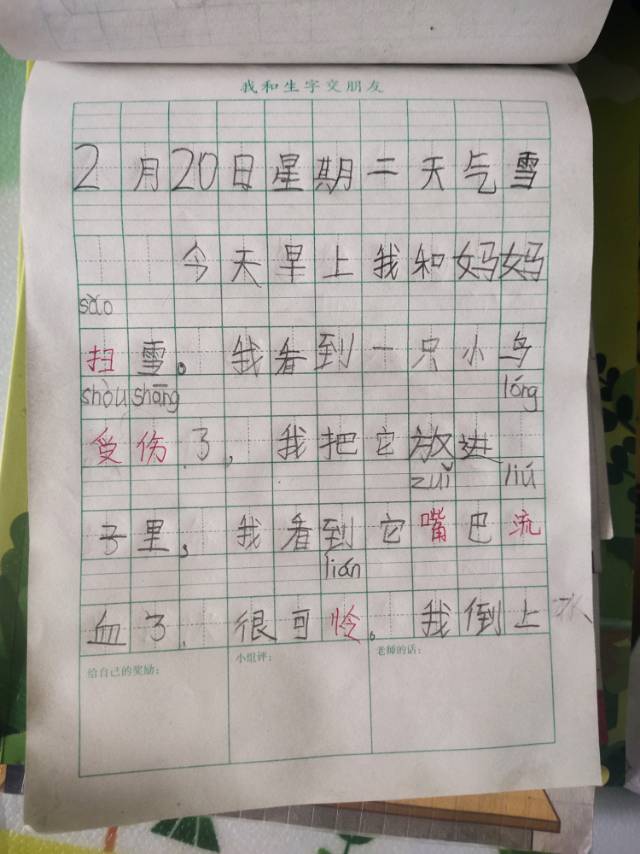 我和生字交朋友
2月20日星期二天气雪
今天早上我和妈妈
sǎo
扫雪。我看到一只小鸟
shòu shāng lóng
受伤了，我把它放进
zuǐ liú
子里，我看到它嘴巴流
lián
血了，很可怜。我倒上水
给自己的奖励：
小组评：
老师的话：